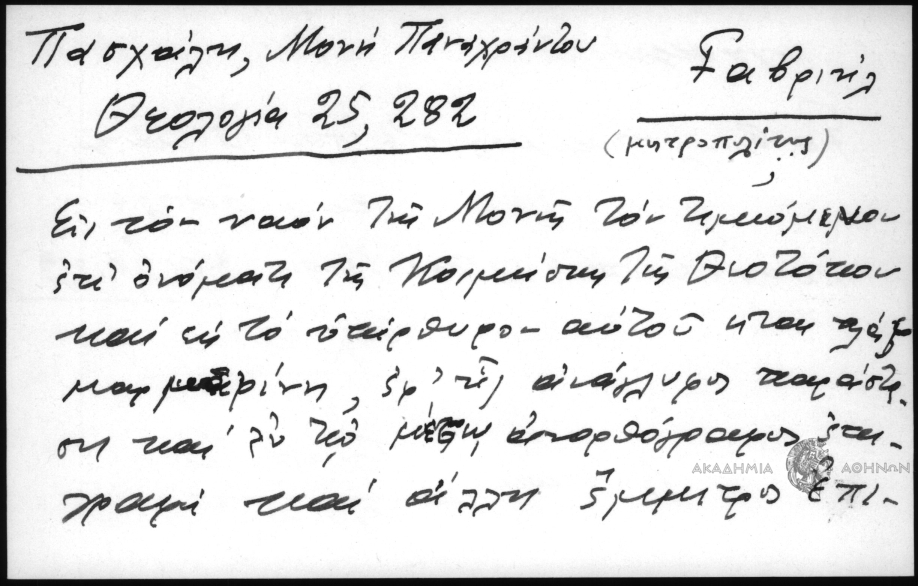 Πασχάλη, Μονή Παναχράντου
Θεολογία 25, 282
Γαβριήλ
(μητροπολίτης)
Εις τόν ναόν της Μονής τόν τιμώμενον
επ' ονόματι της Κοιμήσεως της Θεοτόκου
καί εις τό υπέρθυρον αυτού είναι πλάξ
μαρμαρίνη, εφ' ης ανάγλυφος παράστα-
σις καί εν τω μέσω ανορθόγραφος επι-
γραφή καί άλλη έμμετρος επι-
ΑΚΑΔΗΜΙΑ ΑΘΗΝΩΝ